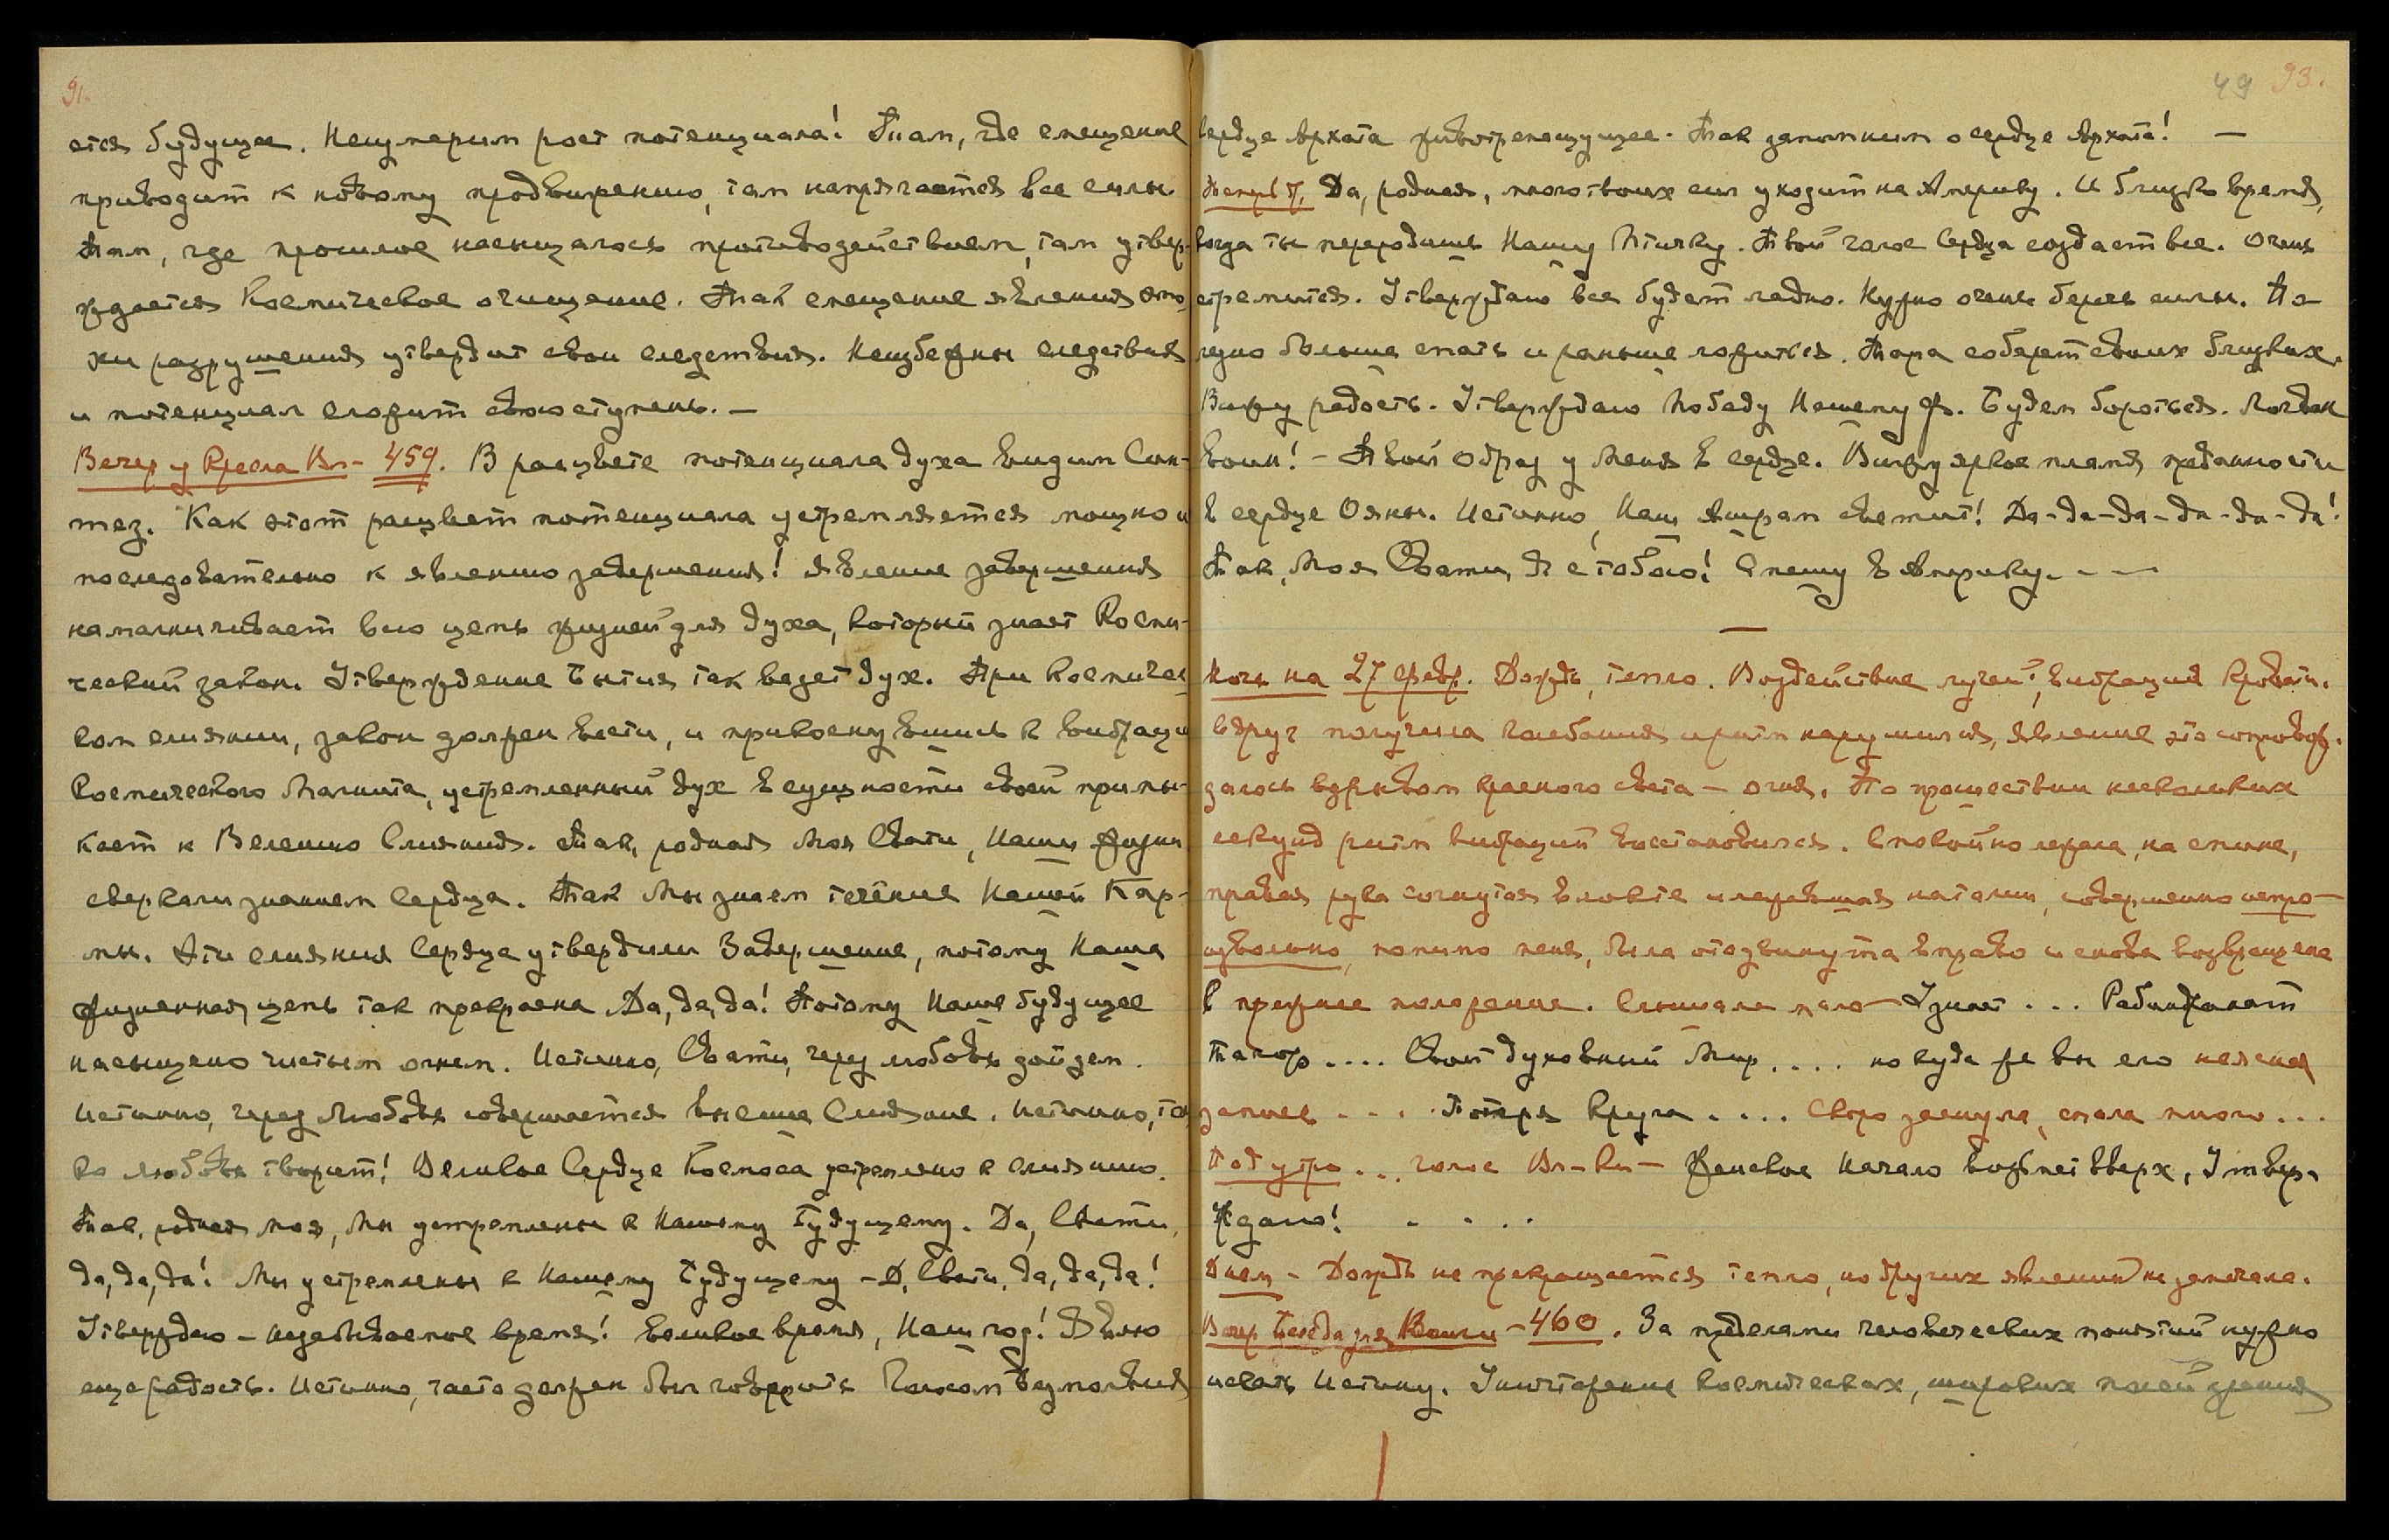 91.
ется будущее. Неизмерим рост потенциала! Там, где смещение
приводит к новому продвижению, там напрягаются все силы.
Там, где прошлое насыщалось противодействием, там утвер-
ждается Космическое очищение. Так смещение явления эпо-
хи разрушения утвердит свои следствия. Неизбежны следствия
и потенциал сложит свою ступень. —
Вечер у Кресла Вл- 459. В расцвете потенциала духа видим Син-
тез. Как этот расцвет потенциала устремляется мощно и
последовательно к явлению завершения! Явление завершения
намагничивает всю цепь жизней для духа, который знает Косми-
ческий закон. Утверждение Бытия так ведет дух. При Космичес-
ком слиянии, закон должен вести, и прикоснувшись к вибрации
Космического Магнита, устремленный дух в сущности своей примы-
кает к Велению Слияния. Так, родная Моя Свати, Наши Жизни
сверкали знанием Сердца. Так Мы знаем течение Нашей Кар-
мы. Эти слияния Сердца утвердили Завершение, потому Наша
Жизненная цепь так прекрасна. Да, да, да! Потому Наше будущее
насыщено чистым огнем. Истинно, Свати, через любовь дойдем.
Истинно, через Любовь совершается высшее Слияние. Истинно, то-
ко любовь творит! Великое Сердце Космоса устремлено к слиянию.
Так, родная моя, Мы устремлены к Нашему Будущему. Да, Свати,
да, да, да! Мы устремлены к Нашему Будущему – Д, Свати, да, да, да!
Утверждаю – незабываемое время! Великое время, Наш год! Явлю
еще радость. Истинно, часто должен был говорить Голосом Безмолвия
49 93.
сердце Архата животрепещущее. Так запомним о сердце Архата! —
Да, родная, много твоих сил уходит на Америку. И близко время,
когда ты переродишь Нашу Птичку. Твой голос Сердца создаст все. Очень
стремится. Утверждаю все будет ладно. Нужно очень беречь силы. На-
дно больше спать и раньше ложиться. Пора соберет своих близких.
Вижу радость. Утверждаю победу Нашему Ф. Будем бороться. Логван
воин! – Твой Образ у Меня в сердце. Вижу яркое пламя преданности
в сердце Ояны. Истинно, Наш Ашрам светит! Да-да-да-да-да-да!
Так, Моя Свати, Я с тобою! Спешу в Америку. - —
—
Ночь на 27 февр. Дождь, тепло. Воздействие лучей, вибрация кровати.
вдруг получила колебания и ритм нарушился, явление это сопровож-
далось взрывом красного света – огня. По прошествии нескольких
секунд ритм вибраций восстановился. Спокойно лежала, на спине,
правая рука согнутая в локте и лежавшая на талии, совершенно непро-
извольно, помимо меня, была отодвинута вправо и снова возвращена
в прежнее положение. Слышала мало – Узнает ... Рабиндранат
Тагор .... Свой духовный Мир .... но куда же вы его неясная
запись .... Потеря Круга .... Скоро заснула, спала много ...
Под утро ... голос Вл-ки – Женское Начало возьмет вверх, Утвер-
ждаю! . . . .
Днем – Дождь не прекращается тепло, но других явлений не замечала.
Вечер Беседа для Книги – 460. За пределами человеческих понятий нужно
искать Истину. Уничтожение космических, мировых полей зрения